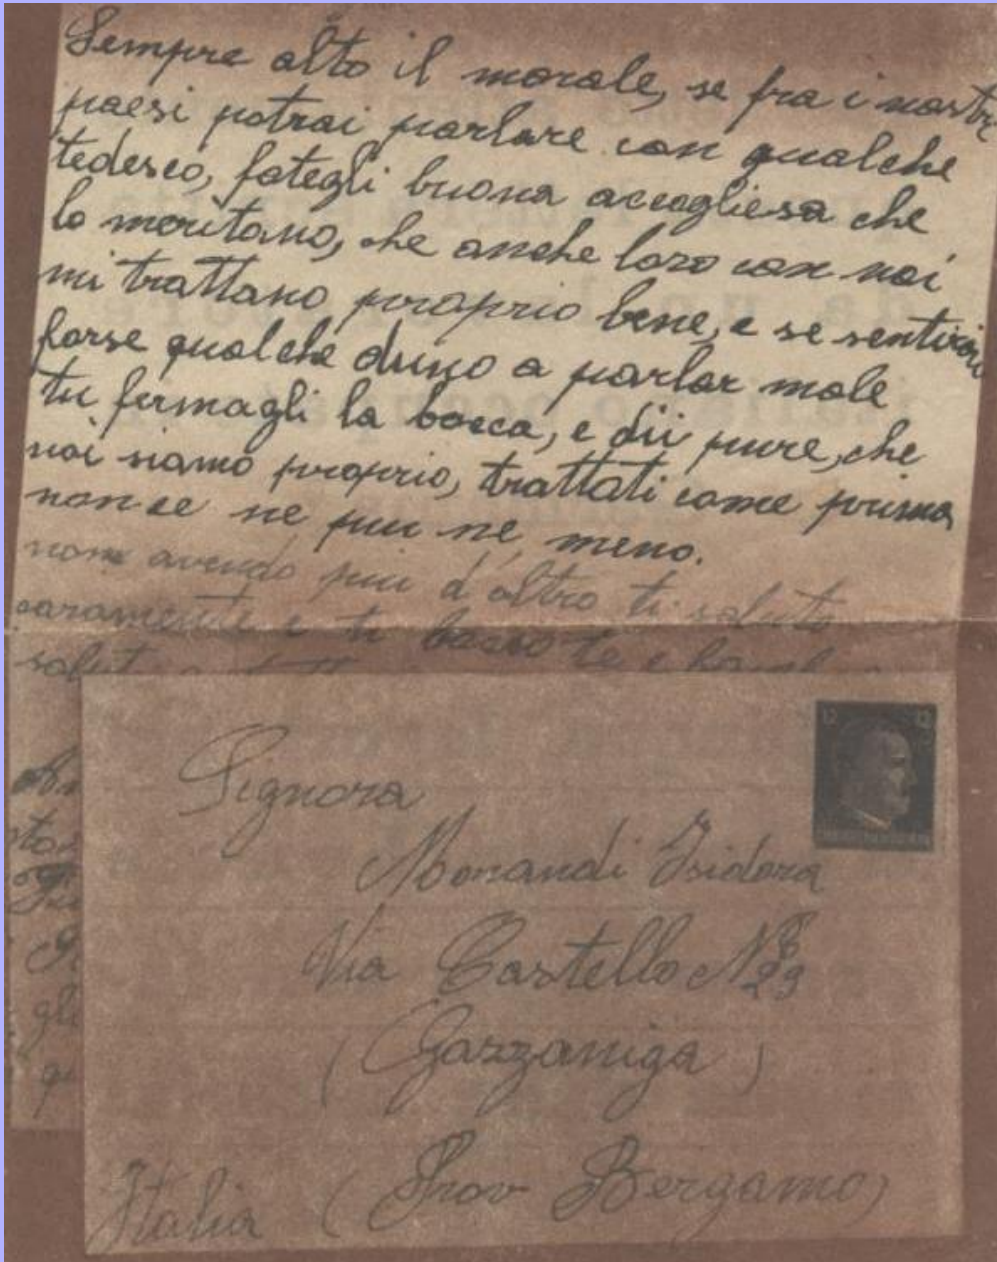 Sempre alto il morale, se fra i nostri
paesi potrai parlare con qualche
tedesco, fategli buona accogliesa che
lo meritano, che anche loro con noi
mi trattano proprio bene, e se sentirai
forse qualche duno a parlar male
tu firmagli la bocca, e dii pure, che
noi siamo proprio, trattati come prima
non ce ne piu ne, meno.
nom avendo piu d'altro ti saluto
caramente e ti bacio te e
salut
12 12
Signora
Monandi Isidora
Via Castello N° 29
(Gazzaniga)
Italia (Prov Bergamo)